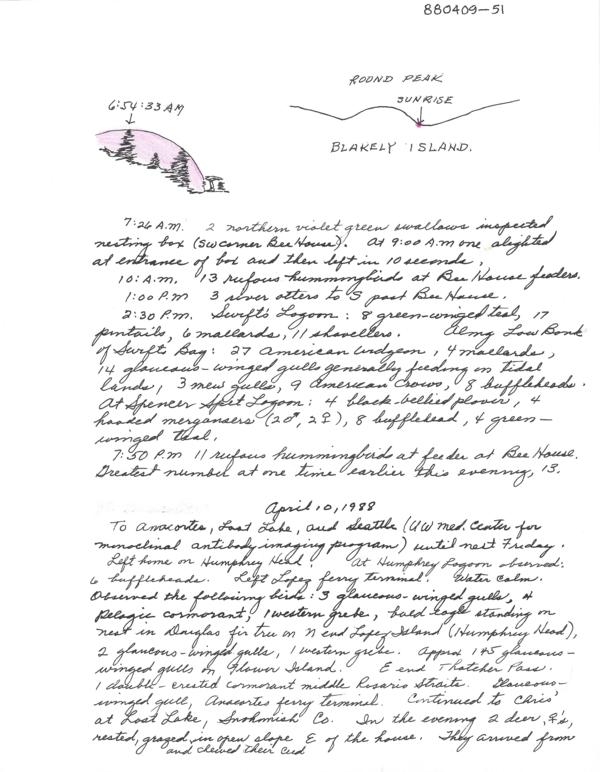 880409-51
ROUND PEAK
6:54:33 AM
SUNRISE
BLAKELY ISLAND.
7:26 A.M. 2 northern violet green swallows inspected
nesting box (SW corner Bee House). At 9:00 A.M one alighted
at entrance of box and then left in 10 seconds,
10: A.M. 13 rufous hummingbirds at Bee House feeders.
1:00 P.M 3 river otters to S past Bee House.
2:30 P.M. Swift's Lagoon: 8 green-winged teal, 17
pintails, 6 mallards, 11 shovellers. Along Low Bank
of Swifts Bay: 27 American widgeon, 4 mallards,
14 glaucous-winged gulls generally feeding on tidal
lands, 3 mew gulls, 9 American Crows, 8 buffleheads.
At Spencer Spit Lagoon: 4 black-bellied plover, 4
hooded mergansers (2♂, 2♀), 8 bufflehead, 4 green-
winged teal.
7:50 P.M 11 rufous hummingbirds at feeder at Bee House.
Greatest number at one time earlier this evening, 13.
April 10, 1988
To Anacortes, Lost Lake, and Seattle (UW Med. Center for
monoclinal antibody imaging program) until next Friday.
Left home on Humphrey Head. At Humphrey Lagoon observed:
6 buffleheads. Left Lopez ferry terminal. Water calm.
Observed the following birds: 3 glaucous-winged gulls, 4
Pelagic cormorant, 1 western grebe, bald eagle standing on
nest in Douglas fir tree on N end Lopez Island (Humphrey Head),
2 glaucous-winged gulls, 1 western grebe. Approx 145 glaucous-
winged gulls on Flower Island. E end Thatcher Pass.
1 double-crested cormorant middle Rosario Straits. Glaucous-
winged gull, Anacortes ferry terminal. Continued to Chris'
at Lost Lake, Snohomish Co. In the evening 2 deer, ♀'s,
rested, grazed in open slope E of the house. They arrived from
and chewed their cud